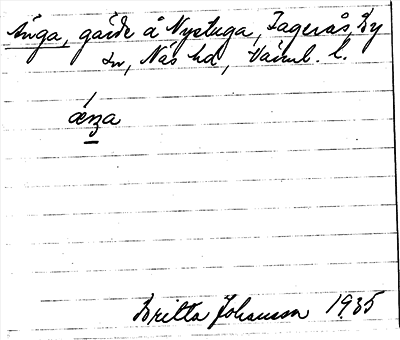 Änga, gärde å Nystuga, Tagerås, By
sn, Näs hd, Värml. l.
ænga
Britta Johansson 1935